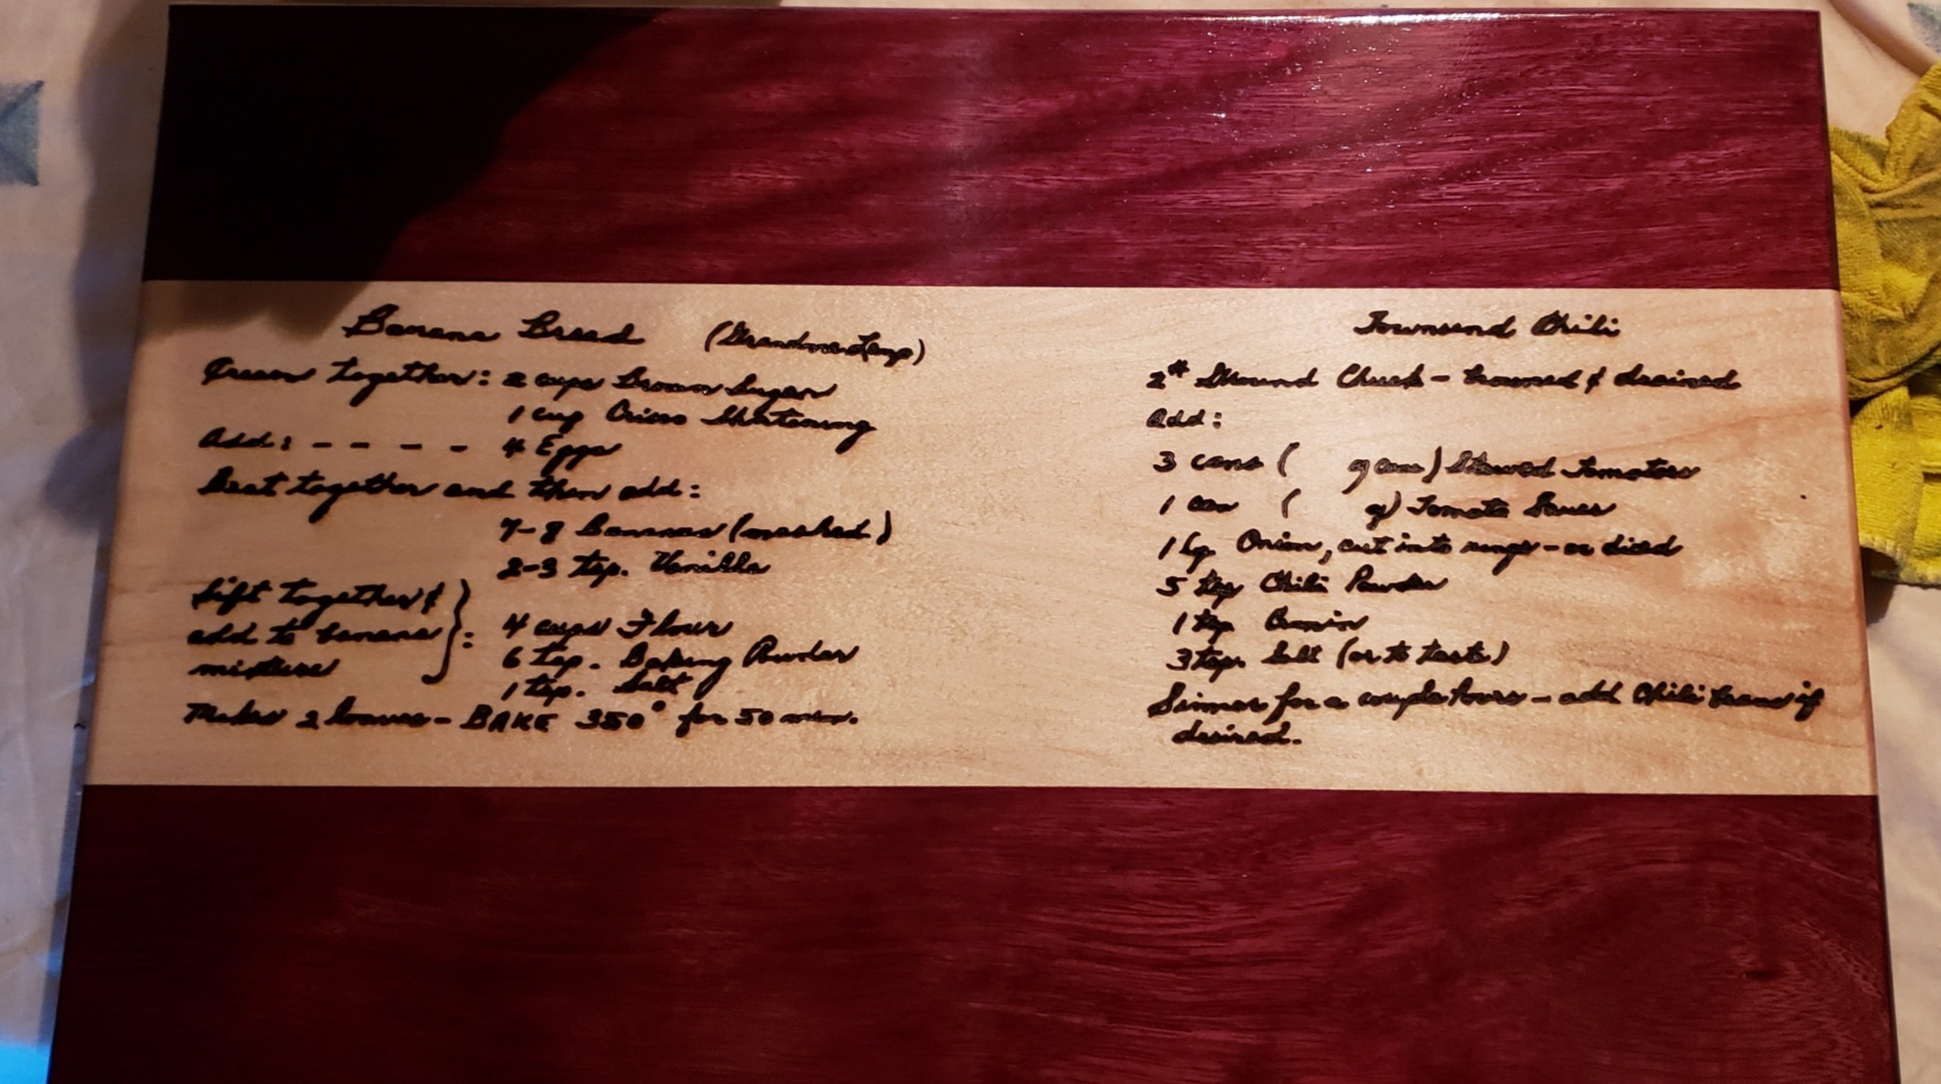 Banana Bread (Grandma Lamp)
Cream together: 2 cups Brown Sugar
1 cup Crisco Shortening
Add: - - - - 4 Eggs
Beat together and then add:
7-8 Bananas (mashed)
2-3 tsp. Vanilla
Sift together &
add to banana
mixture } :
4 cups Flour
6 tsp. Baking Powder
1 tsp. Salt
Makes 2 loaves - BAKE 350° for 50 min.
Townsend Chili
2# Ground Chuck - browned & drained
Add:
3 cans ( ) Stewed Tomatoes
1 can ( ) Tomato Sauce
1 lg. Onion, cut into rings - or diced
5 tsp Chili Powder
1 tsp Cumin
3 tsp. Salt (or to taste)
Simmer for a couple hours - add Chili beans if
desired.